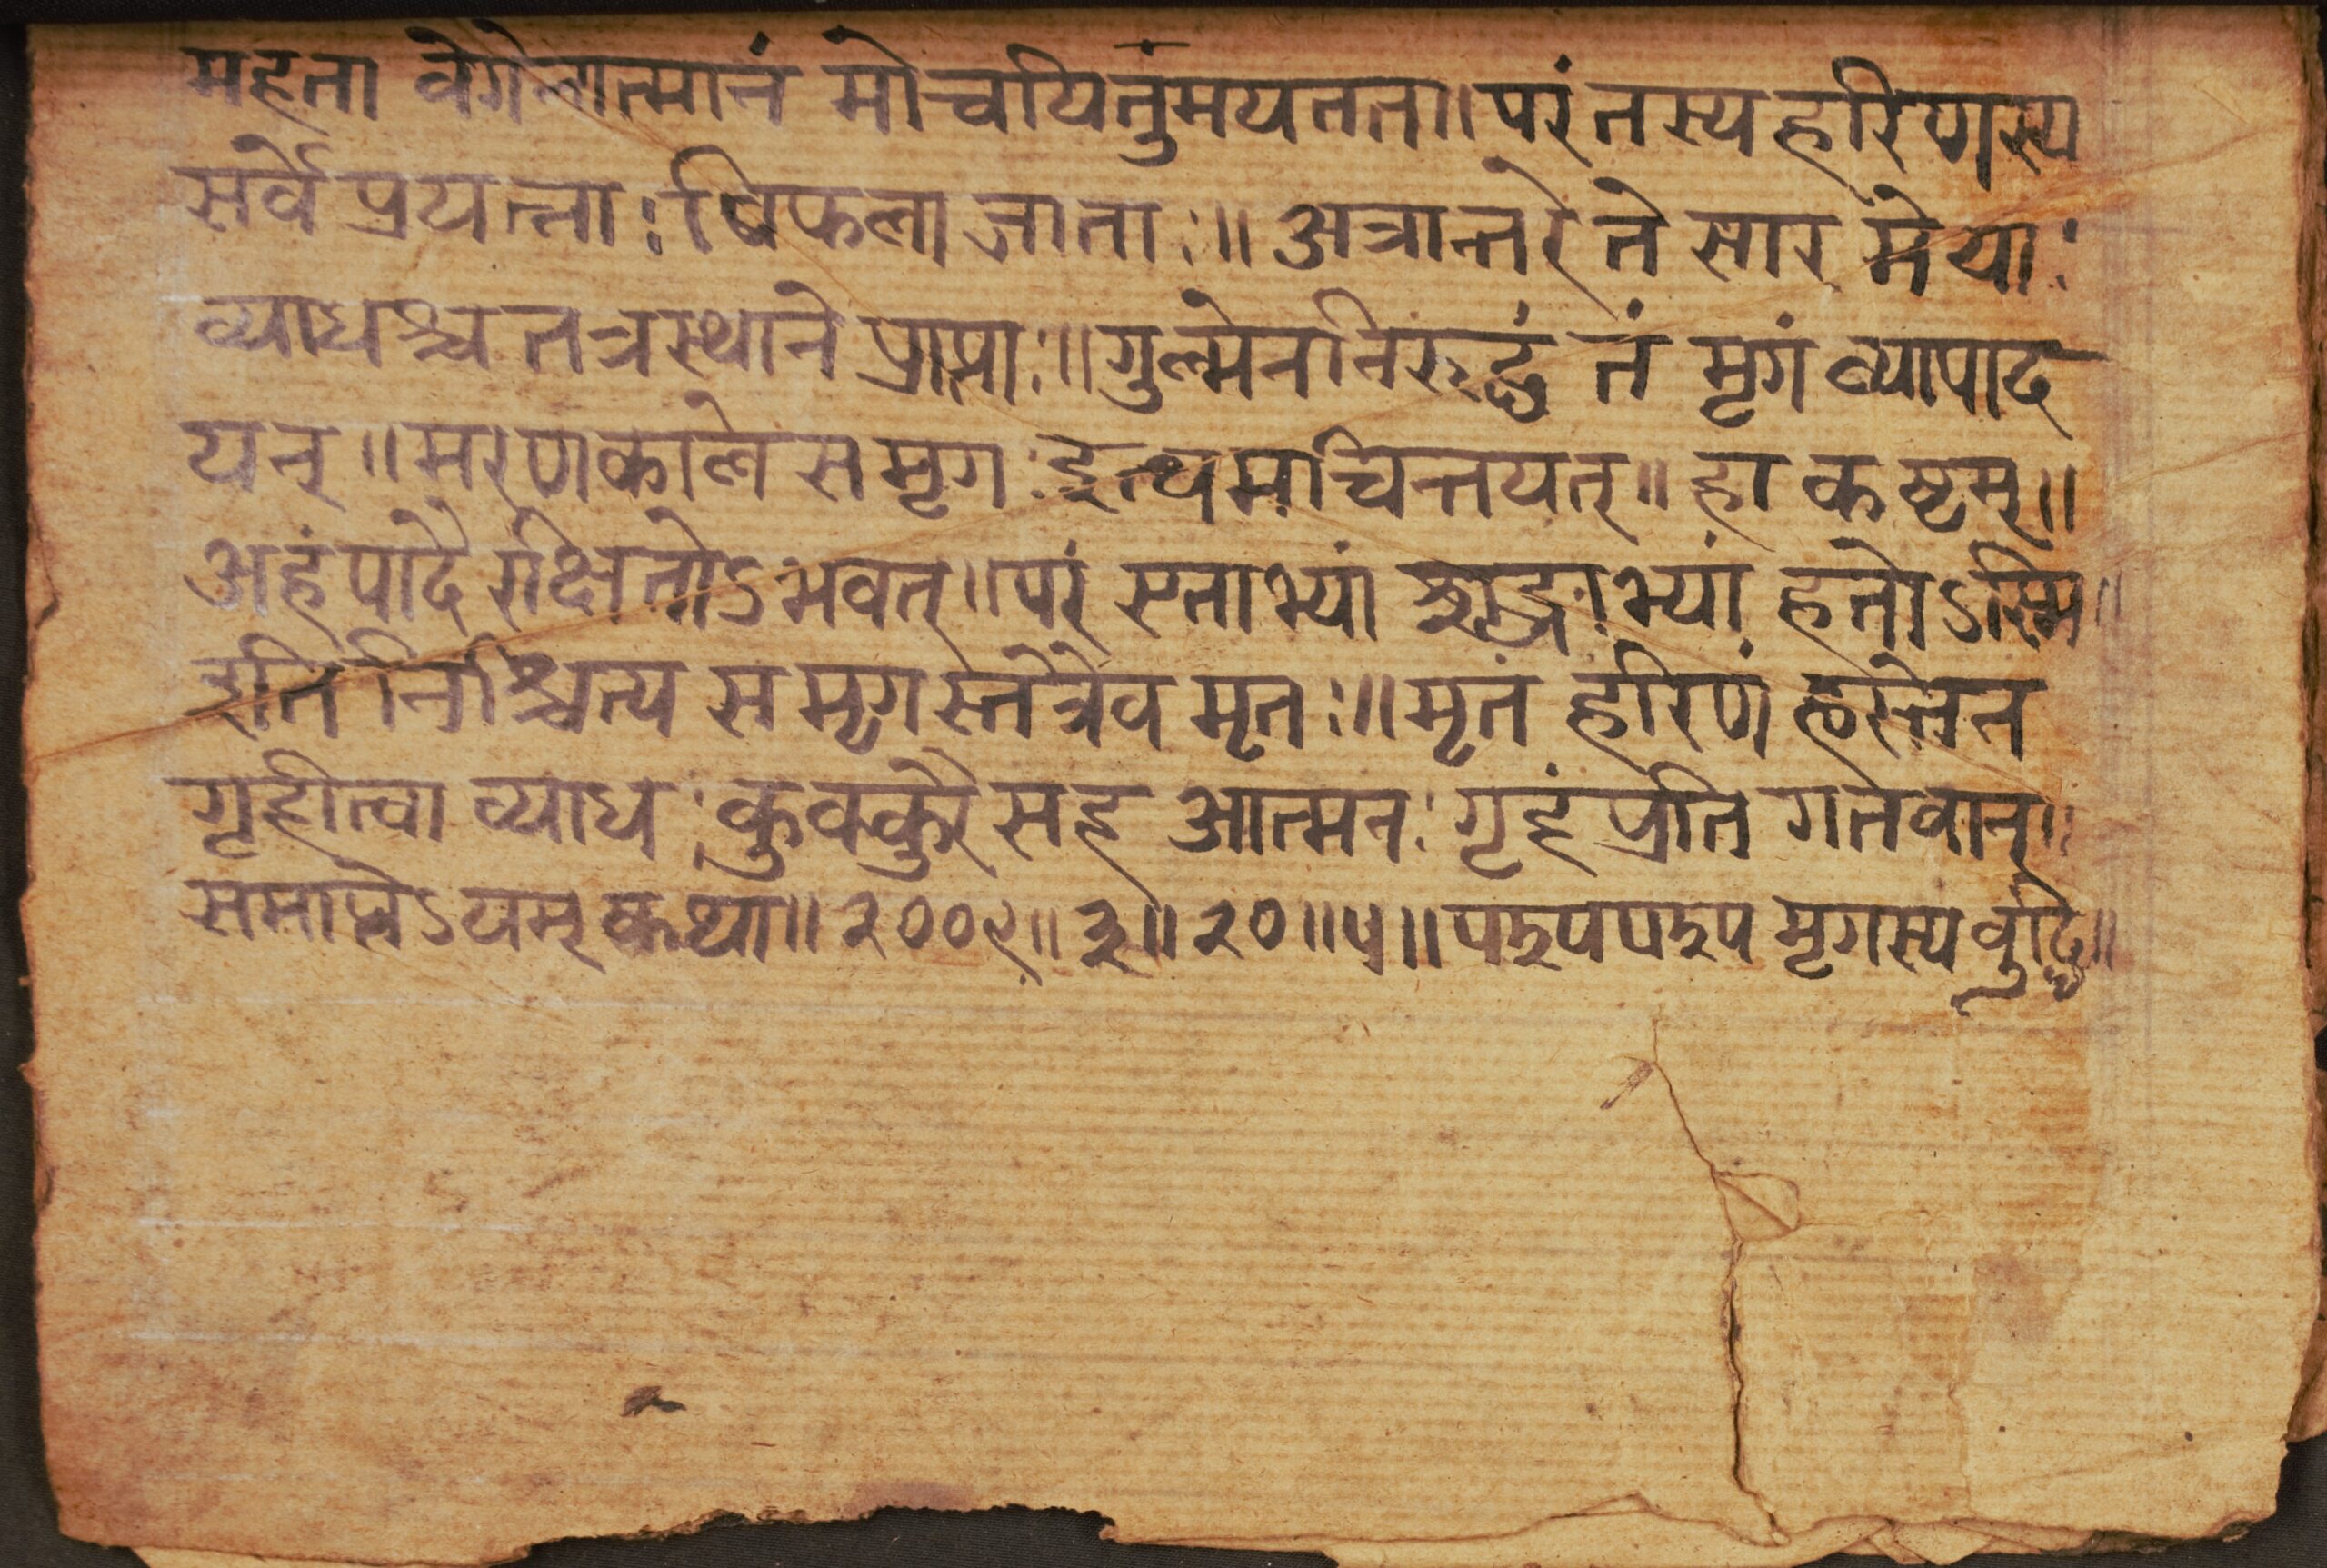 महता वेगेनात्मानं मोचयितुंमयतत॥परं तस्य हरिणस्य
सर्वे प्रयत्ना: विफला जाता:॥ अत्रान्तरे ते सारमेया:
व्याधश्च तत्रस्थाने प्राप्ता:॥गुल्मेननिरुद्धं तं मृगं व्यापाद
यन्॥मरणकाले स मृग:इत्थमचिन्तयत्॥ हा कष्टम्॥
अहं पादै रक्षितोऽभवत्॥परं एताभ्यां शृङ्गाभ्यां हतोऽस्मि॥
इति निश्चित्य स मृगस्तत्रैव मृत:॥मृतं हरिणं हस्तेन
गृहीत्वा व्याध:कुक्कुरै सह आत्मन:गृहं प्रति गतवान्॥
समाप्तेऽयम् कथा॥२००९॥३॥२०॥५॥ मृगस्य वुद्धि॥